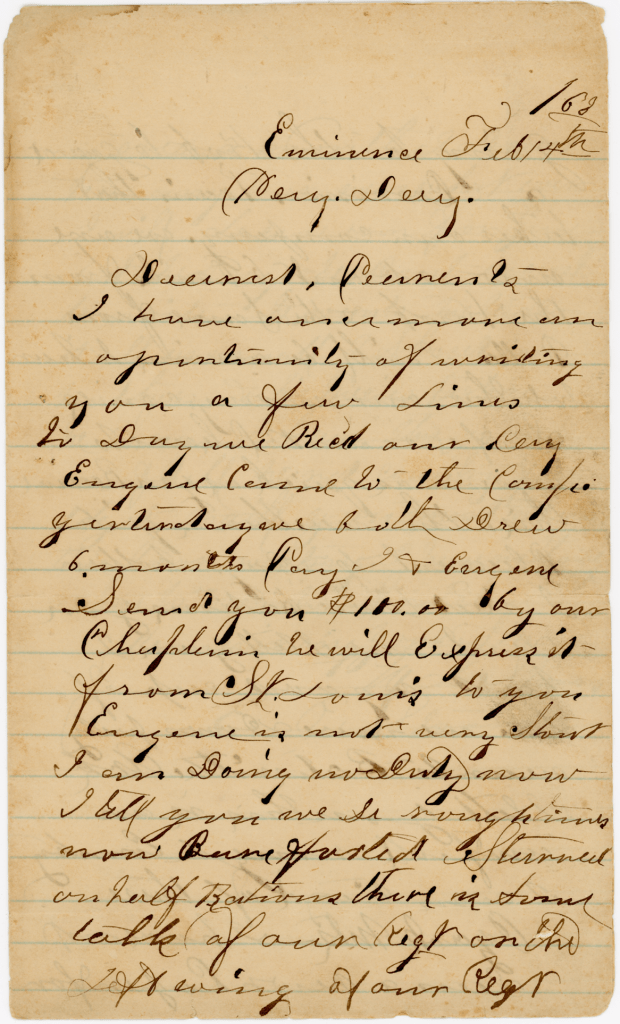 163
Eminence Feb 14th
Pery. Dery.
Dearest, Pearents
I have once more an
oportunity of writing
you a few Lines
to Day we Recd our Pay
Eugene Came to the Camp
yesterday we both Drew
6. months Pay I & Eugene
Send you $100.00 by our
Chaplin he will Express it
from St. Louis to you
Eugene is not very Stout
I am Doing no Duty now
I tell you we se rough times
now Bare footed & Starved
on half Rations there is some
talk of our Regt or the
Left wing of our Regt